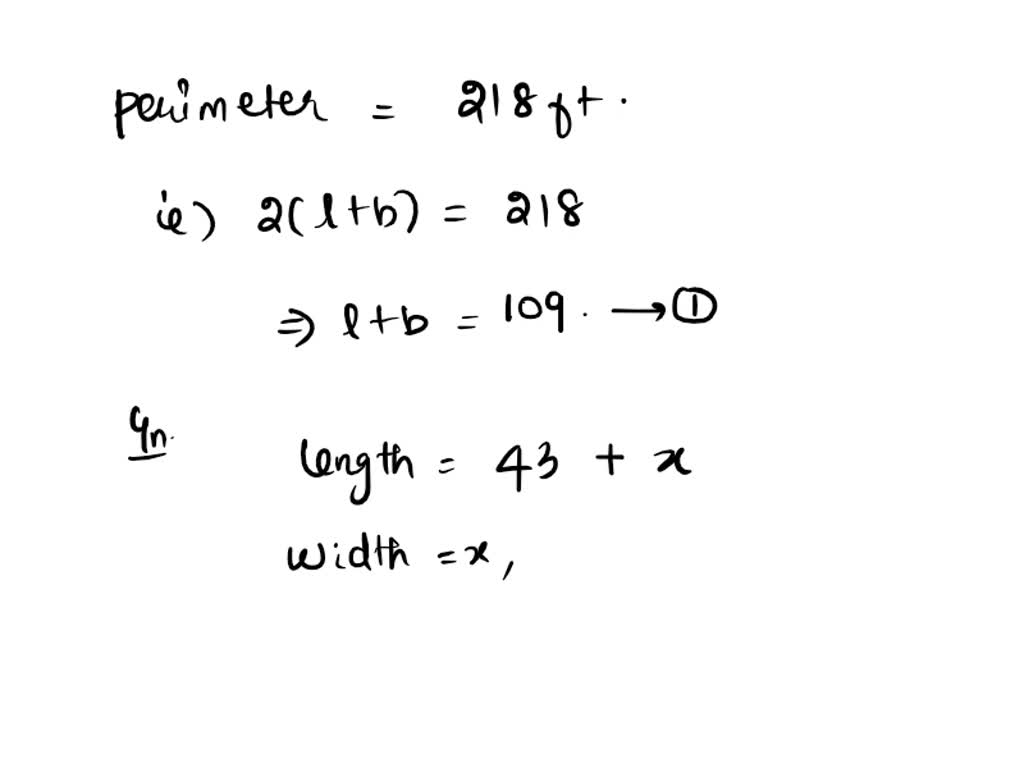 perimeter = 218 ft.
ie) 2(l+b) = 218
⇒ l+b = 109. → ①
Gn.
length = 43 + x
width = x,